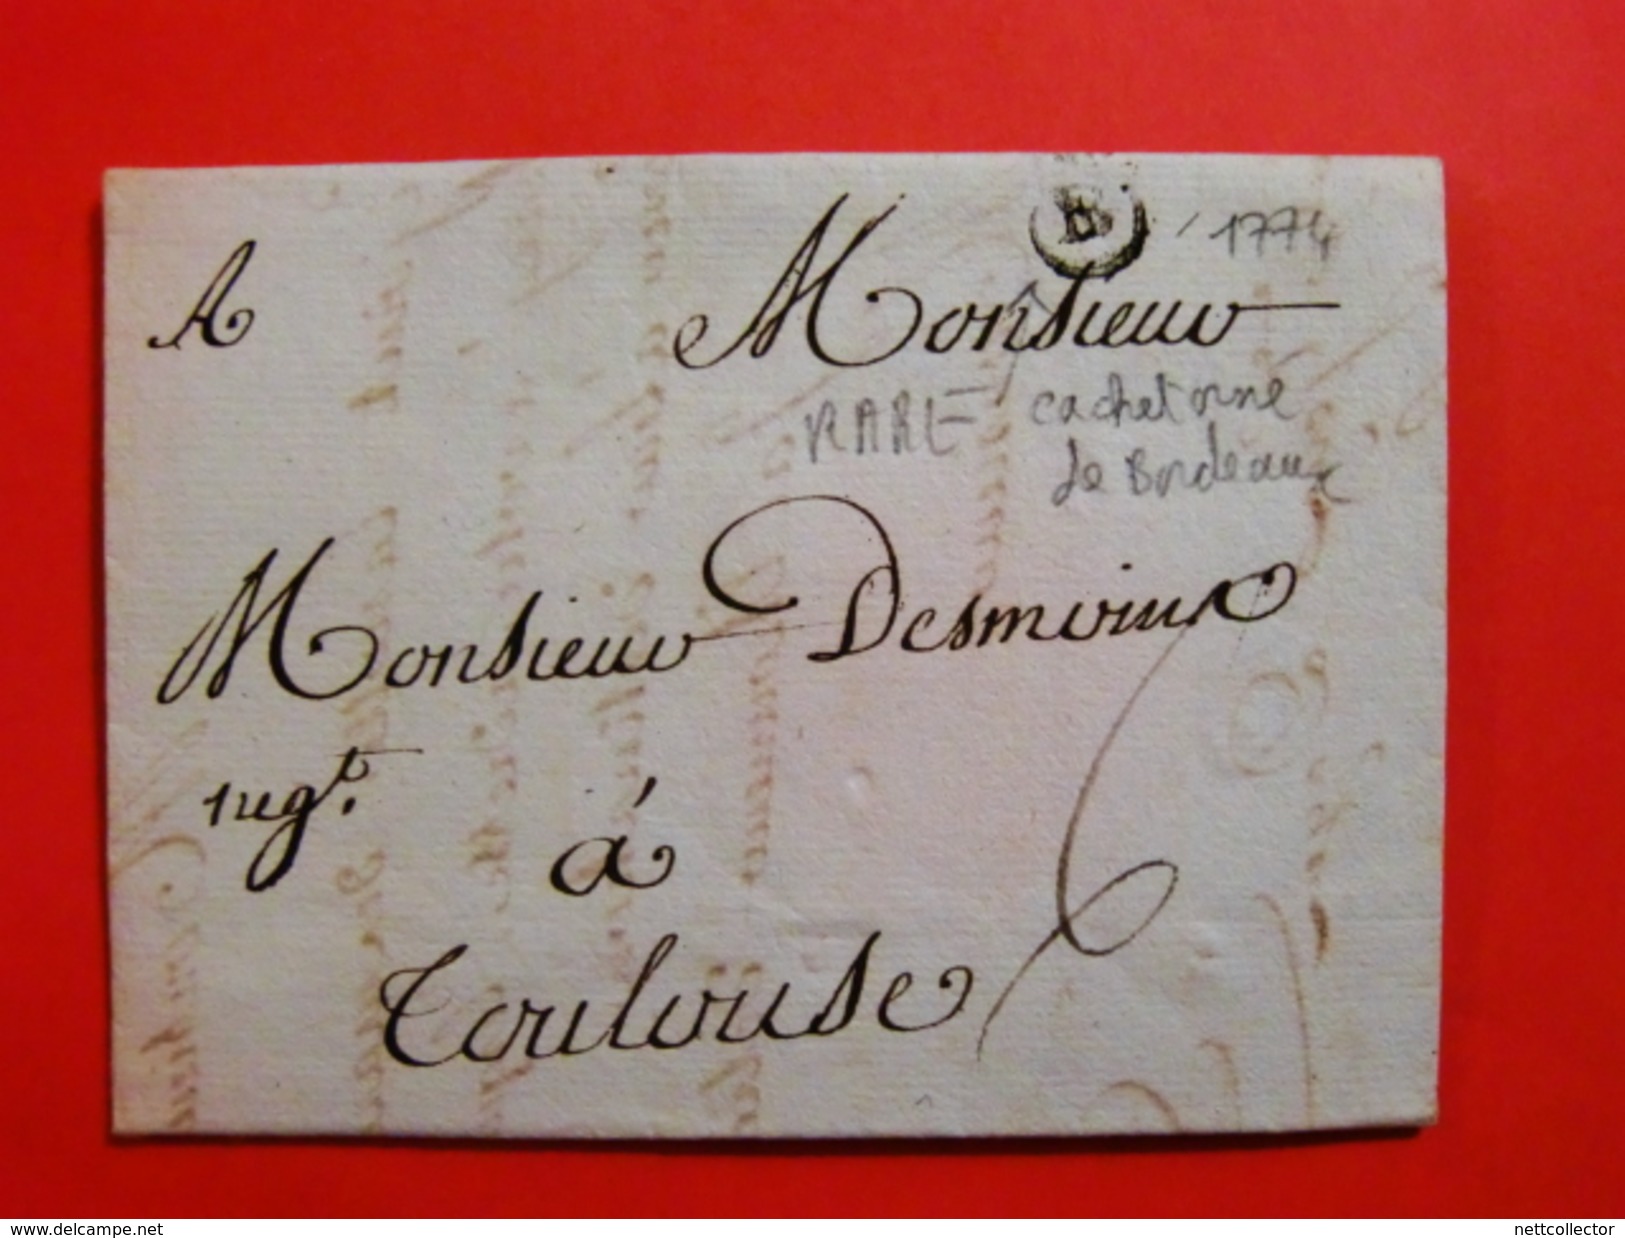 B 1774
A Monsieur
RARE cachet orné
de Bordeaux
Monsieur Desmoins
negt.
à
Toulouse
6
www.delcampe.net nettcollector